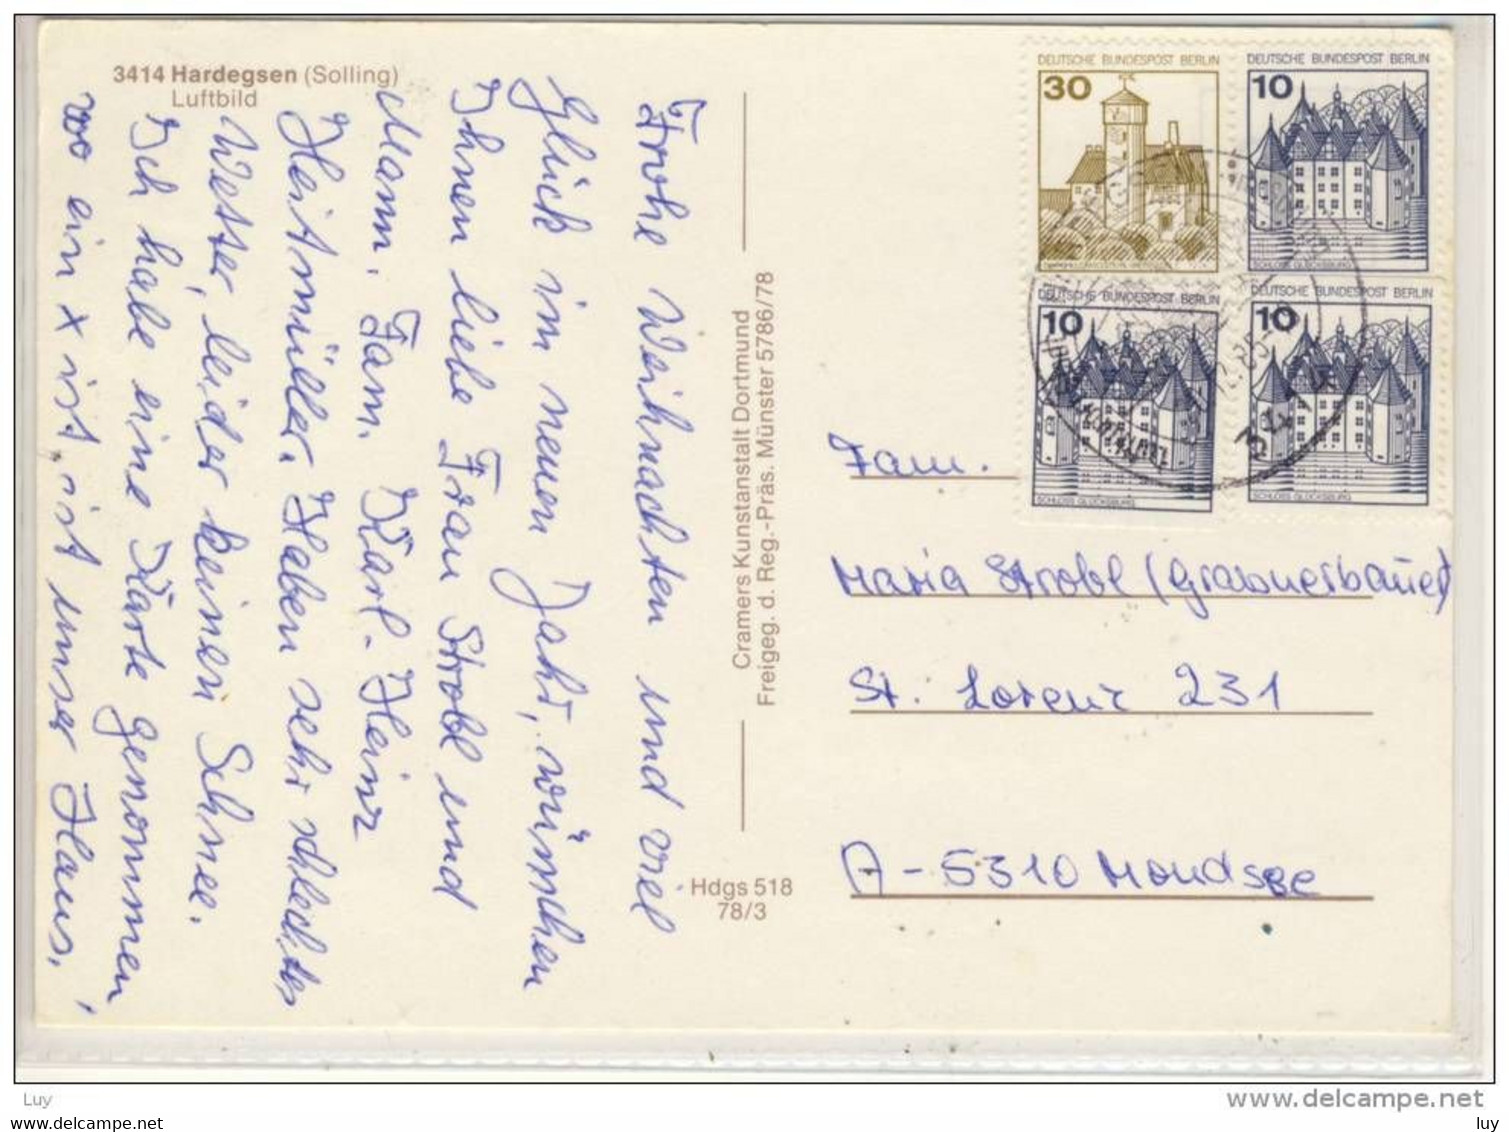 3414 Hardegsen (Solling)
Luftbild
Frohe Weihnachten und viel
Glück im neuen Jahr, wünschen
Ihnen liebe Frau Strobl und
Mann. Fam. Karl-Heinz
Heitmüller. Haben sehr schlechtes
Wetter, leider keinen Schnee.
Ich habe eine Karte genommen,
wo ein x ist, ist unser Haus.
Cramers Kunstanstalt Dortmund
Freigeg. d. Reg.-Präs. Münster 5786/78
Hdgs 518
78/3
DEUTSCHE BUNDESPOST BERLIN
30
DEUTSCHE BUNDESPOST BERLIN
10
SCHLOSS GLÜCKSBURG
DEUTSCHE BUNDESPOST BERLIN
10
SCHLOSS GLÜCKSBURG
DEUTSCHE BUNDESPOST BERLIN
10
SCHLOSS GLÜCKSBURG
341
Fam.
Maria Strobl (Grabnerbauer)
St. Lorenz 231
A-5310 Mondsee
Luy
www.delcampe.net
www.delcampe.net
luy